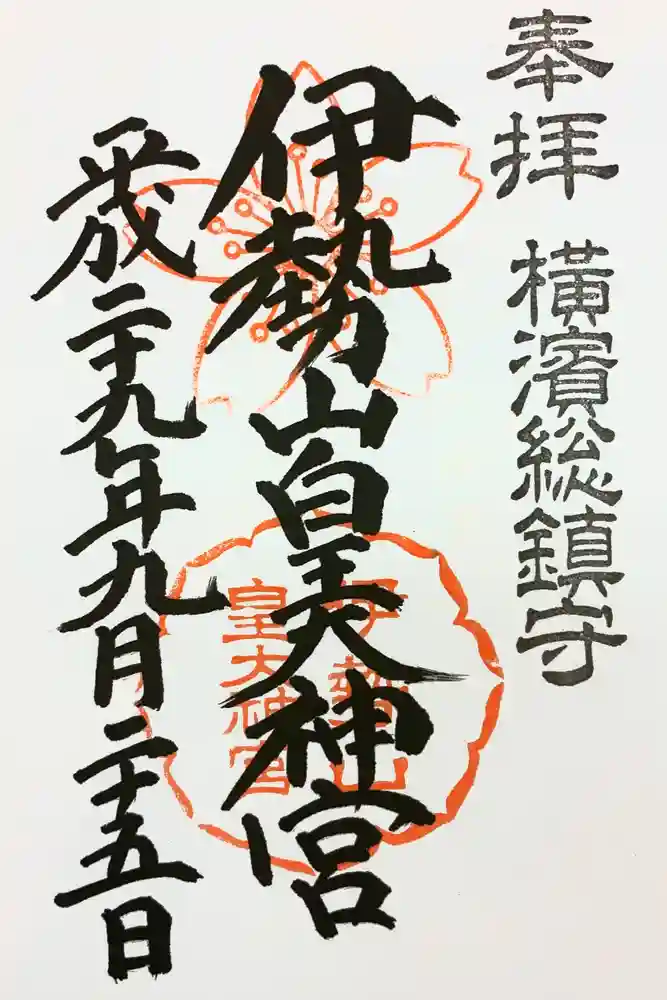 奉拝 横濱総鎮守
伊勢山皇大神宮
伊勢山
皇大神宮
平成二十九年九月二十五日